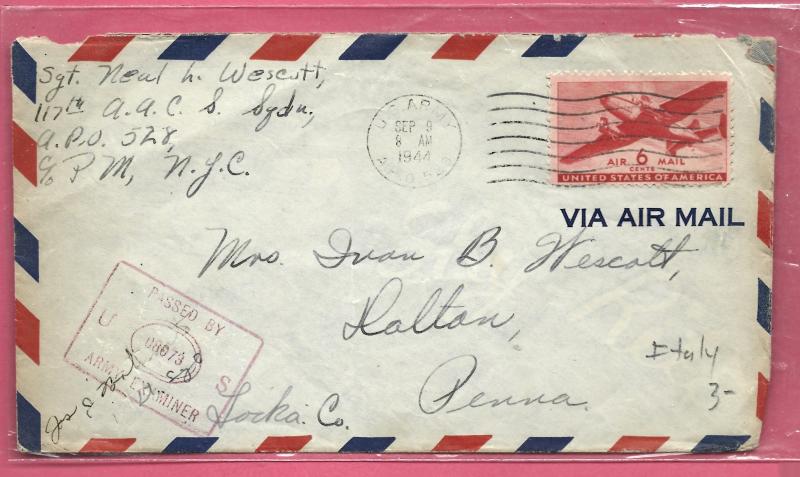 Sgt. Neal L. Wescott,
117th A.A.C.S. Sqdn,
A.P.O. 528,
c/o P M, N.Y.C.
U.S. ARMY
SEP 9
8 AM
1944
A.P.O.
AIR 6 MAIL
CENTS
UNITED STATES OF AMERICA
VIA AIR MAIL
Mrs. Ivan B. Wescott,
Dalton,
Penna.
Lacka. Co.
Italy
3-
PASSED BY
U S
08673
ARMY EXAMINER